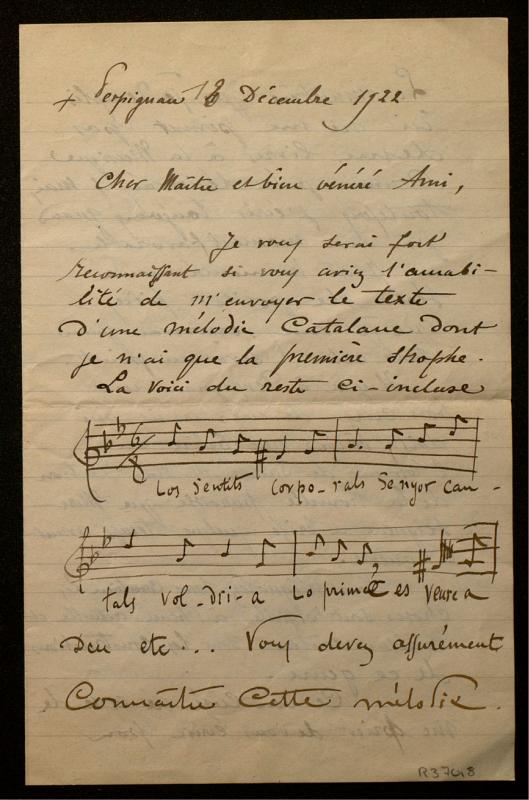 + Perpignan 18 Décembre 1922
Cher Maître et bien vénéré Ami,
Je vous serai fort
reconnaissant si vous aviez l'amabi-
lité de m'envoyer le texte
D'une mélodie Catalane dont
je n'ai que la première strophe.
La voici du reste ci-incluse
6/8
Los Sentits Corpo-rals Senyor Can-
tals vol-dri-a Lo primé es Veure a
Deu etc... Vous devez assurément
Connaître Cette mélodie.
R37018